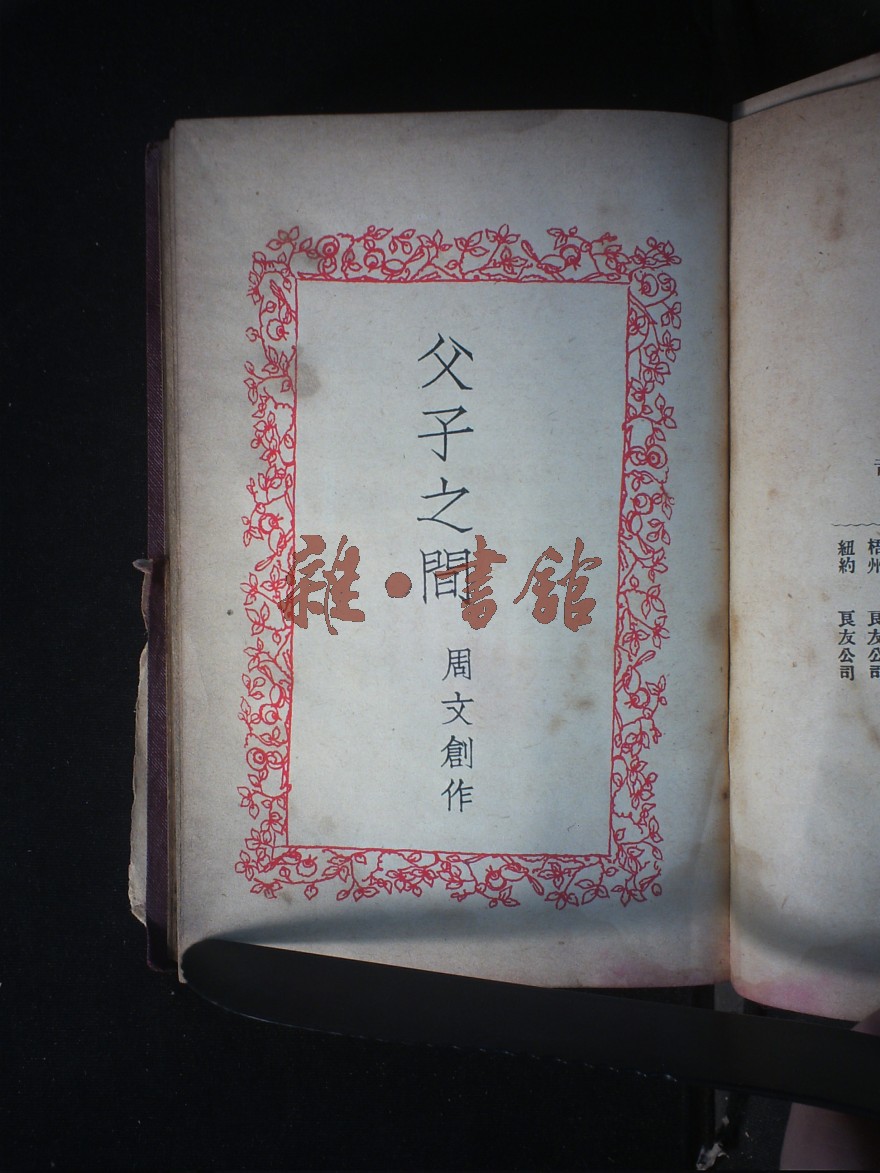 父子之間
周文創作
雜·書館
梧州 良友公司
紐約 良友公司